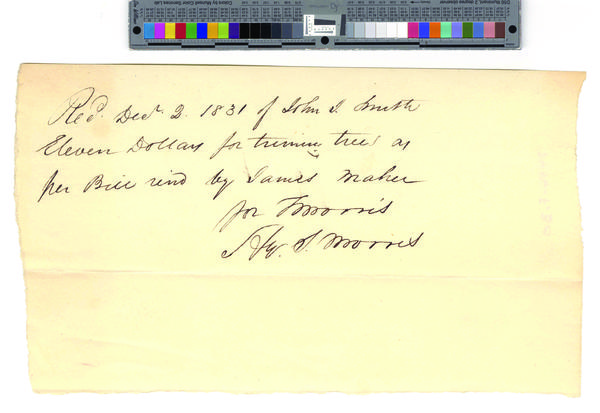 Rec'd. Decr 2. 1831 of John J. Smith
Eleven Dollars for triming trees as
per Bill rend by James Maher
for T Morris
S. Morris